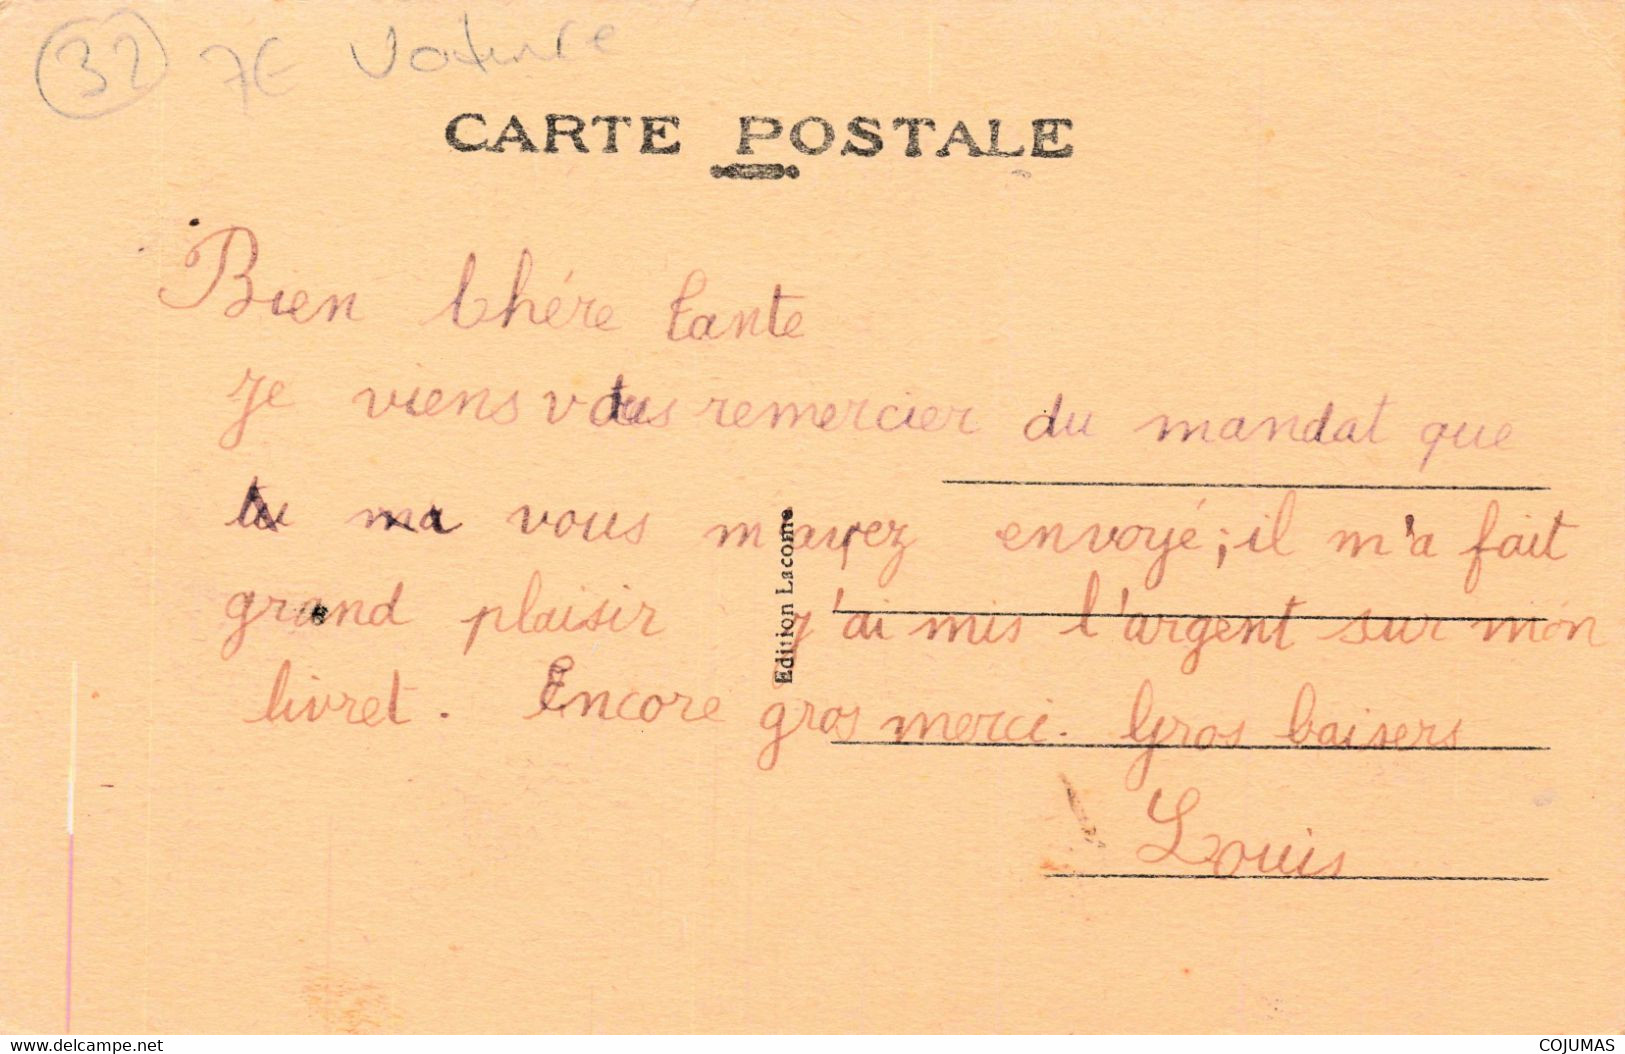 32 7€ Voiture
CARTE POSTALE
Bien Chére tante
Je viens vous remercier du mandat que
tu ma vous m'avez envoyé; il m'a fait
grand plaisir j'ai mis l'argent sur mon
livret. Encore gros merci. Gros baisers
Louis
Edition Lacome
www.delcampe.net
COJUMAS